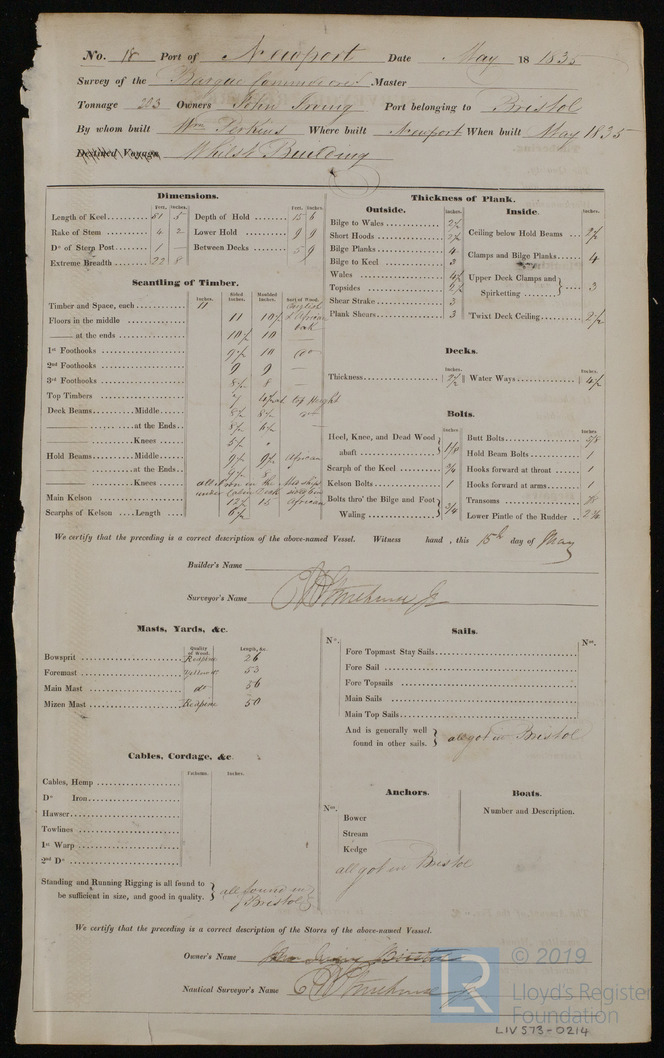 No. 18 Port of Newport Date May 18 1835
Survey of the Barque Master
Tonnage 203 Owners John Irving Port belonging to Bristol
By whom built Wm Perkins Where built Newport When built May 1835
Destined Voyage Whilst Building
Dimensions.
Feet. Inches.
Length of Keel 81 5
Rake of Stem 4 2
Do of Stern Post 1 —
Extreme Breadth 22 8
Feet. Inches.
Depth of Hold 15 6
Lower Hold 9 9
Between Decks 5 9
Scantling of Timber.
Inches. Sided Inches. Moulded Inches. Sort of Wood.
Timber and Space, each 11 English
Floors in the middle 11 10½ & African oak
—— at the ends 10½ 10 —
1st Foothooks 9½ 10 do
2nd Foothooks 9 9 —
3rd Foothooks 8½ 8 —
Top Timbers
Deck Beams Middle 8½ 8½
—— at the Ends 8½ 6½ —
—— Knees 5½ "
Hold Beams Middle 9½ 9½ African
—— at the Ends 9½ 8
—— Knees all Iron in the
under Cabin Deck
Main Kelson 12½ 15 African
Scarphs of Kelson Length 6½
Thickness of Plank.
Outside. Inches.
Bilge to Wales 2½
Short Hoods 2½
Bilge Planks 4
Bilge to Keel 3
Wales 4½
Topsides 2½
Shear Strake 3
Plank Shears 3
Inside. Inches.
Ceiling below Hold Beams 2½
Clamps and Bilge Planks 4
Upper Deck Clamps and Spirketting 3
'Twixt Deck Ceiling 2½
Decks.
Inches. Inches
Thickness 2½ Water Ways 4½
Bolts.
Inches
Heel, Knee, and Dead Wood abaft 1⅛
Scarph of the Keel ⅞
Kelson Bolts 1
Bolts thro' the Bilge and Foot Waling ¾
Inches
Butt Bolts 5/8
Hold Beam Bolts 1
Hooks forward at throat 1
Hooks forward at arms 1
Transoms 7/8
Lower Pintle of the Rudder
We certify that the preceding is a correct description of the above-named Vessel. Witness hand, this 15th day of May
Builder's Name
Surveyor's Name
Masts, Yards, &c.
Quality of Wood. Length, &c.
Bowsprit Redpine 26
Foremast Yellow do 53
Main Mast do 56
Mizen Mast Redpine 50
Sails.
No. Nos.
Fore Topmast Stay Sails
Fore Sail
Fore Topsails
Main Sails
Main Top Sails
And is generally well found in other sails. all got in Bristol
Cables, Cordage, &c.
Fathoms. Inches.
Cables, Hemp
Do Iron
Hawser
Towlines
1st Warp
2nd Do
Standing and Running Rigging is all found to be sufficient in size, and good in quality. all found in Bristol
Anchors.
Nos.
Bower
Stream
Kedge
all got in Bristol
Boats.
Number and Description.
We certify that the preceding is a correct description of the Stores of the above-named Vessel.
Owner's Name
Nautical Surveyor's Name
LR © 2019
Lloyd's Register
Foundation
LIV573-0214